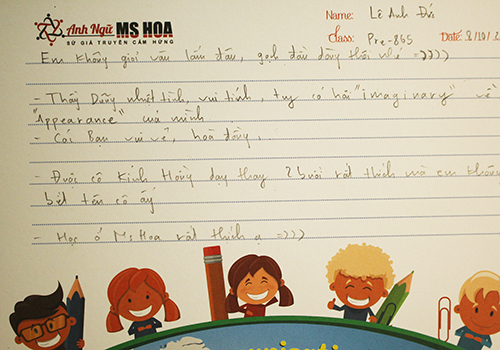 Anh Ngữ MS HOA
SỨ GIẢ TRUYỀN CẢM HỨNG
Name: Lê Anh Đức
Class: Pre-865
Date: 8/10/2
Em không giỏi văn lắm đâu, gạch đầu dòng thôi nhé =))))
- Thầy Dũng nhiệt tình, vui tính, tuy có hơi "imaginary" về
"Appearance" của mình
- Các bạn vui vẻ, hoà đồng.
- Được cô Kính Hồng dạy thay 2 buổi rất thích mà em không
biết tên cô ấy
- Học ở Ms Hoa rất thích ạ =)))